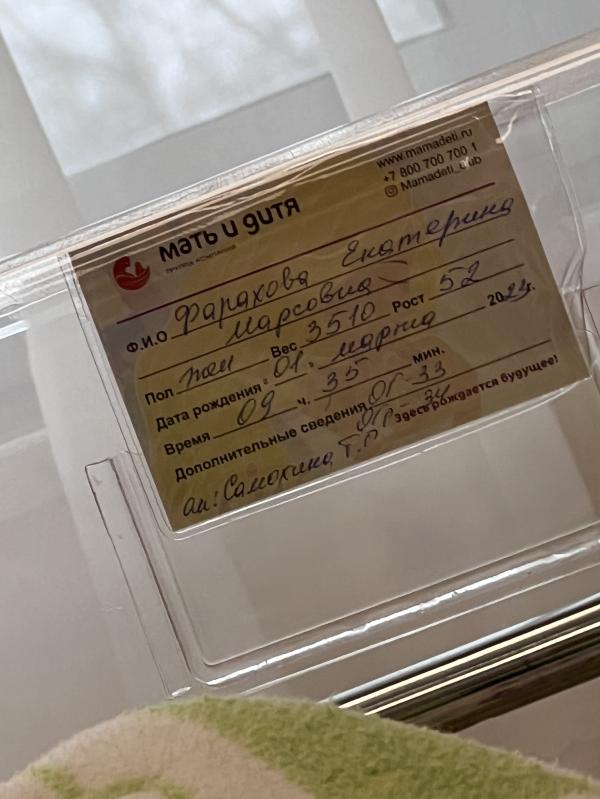 www.mamadeti.ru
+7 800 700 700 1
Mamadeti_club
мать и дитя
ГРУППА КОМПАНИЙ
Ф.И.О Фарахова Екатерина
Марсовна
Пол жен Вес 3510 Рост 52
Дата рождения: 01. марта 2024г.
Время 09 ч. 35 мин.
Дополнительные сведения ОГ 33
ОГР - 34
Здесь рождается будущее!
ак: Самохина Т.Г